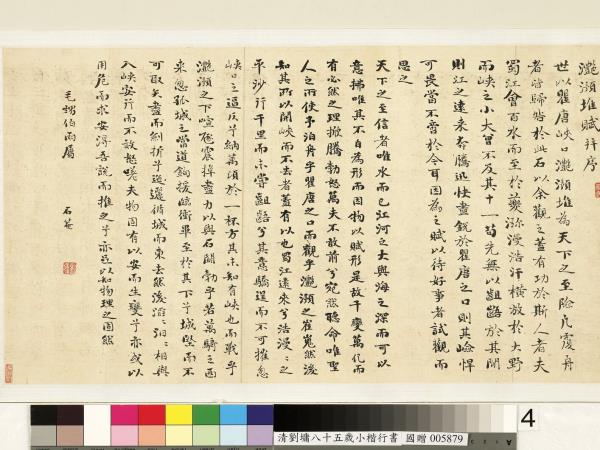 灩澦堆賦并序
世以瞿唐峽口灩澦堆為天下之至險凡覆舟
者皆歸咎於此石以余觀之蓋有功於斯人者夫
蜀江會百水而至於夔瀰漫浩汗橫放於大野
而峽之小大曾不及其十一苟先無以齟齬於其間
則江之遠來奔騰迅快盡銳於瞿唐之口則其嶮悍
可畏當不啻於今耳因為之賦以待好事者試觀而
思之
天下之至信者唯水而已江河之大與海之深而可以
意揣唯其不自為形而因物以賦形是故千變萬化而
有必然之理掀騰勃怒萬夫不敢前兮宛然聽命唯聖
人之所使予泊舟乎瞿唐之口而觀乎灩澦之崔嵬然後
知其所以開峽而不去者蓋有以也蜀江遠來兮浩漫漫之
平沙行千里而未嘗齟齬兮其意驕逞而不可摧忽
峽口之逼仄兮納萬頃於一杯方其未知有峽也而戰乎
灩澦之下喧豗震掉盡力以與石鬭勃乎若萬騎之西
來忽孤城之當道鉤援臨衝畢至於其下兮城堅而不
可取矢盡而劍折兮迤邐循城而東去然後滔滔汩汩相與
入峽安行而不敢怒嗟夫物固有以安而生變兮亦或以
用危而求安得吾說而推之兮亦足以知物理之固然
毛穉伯雨屬
石菴
4
清劉墉八十五歲小楷行書 國贈 005879